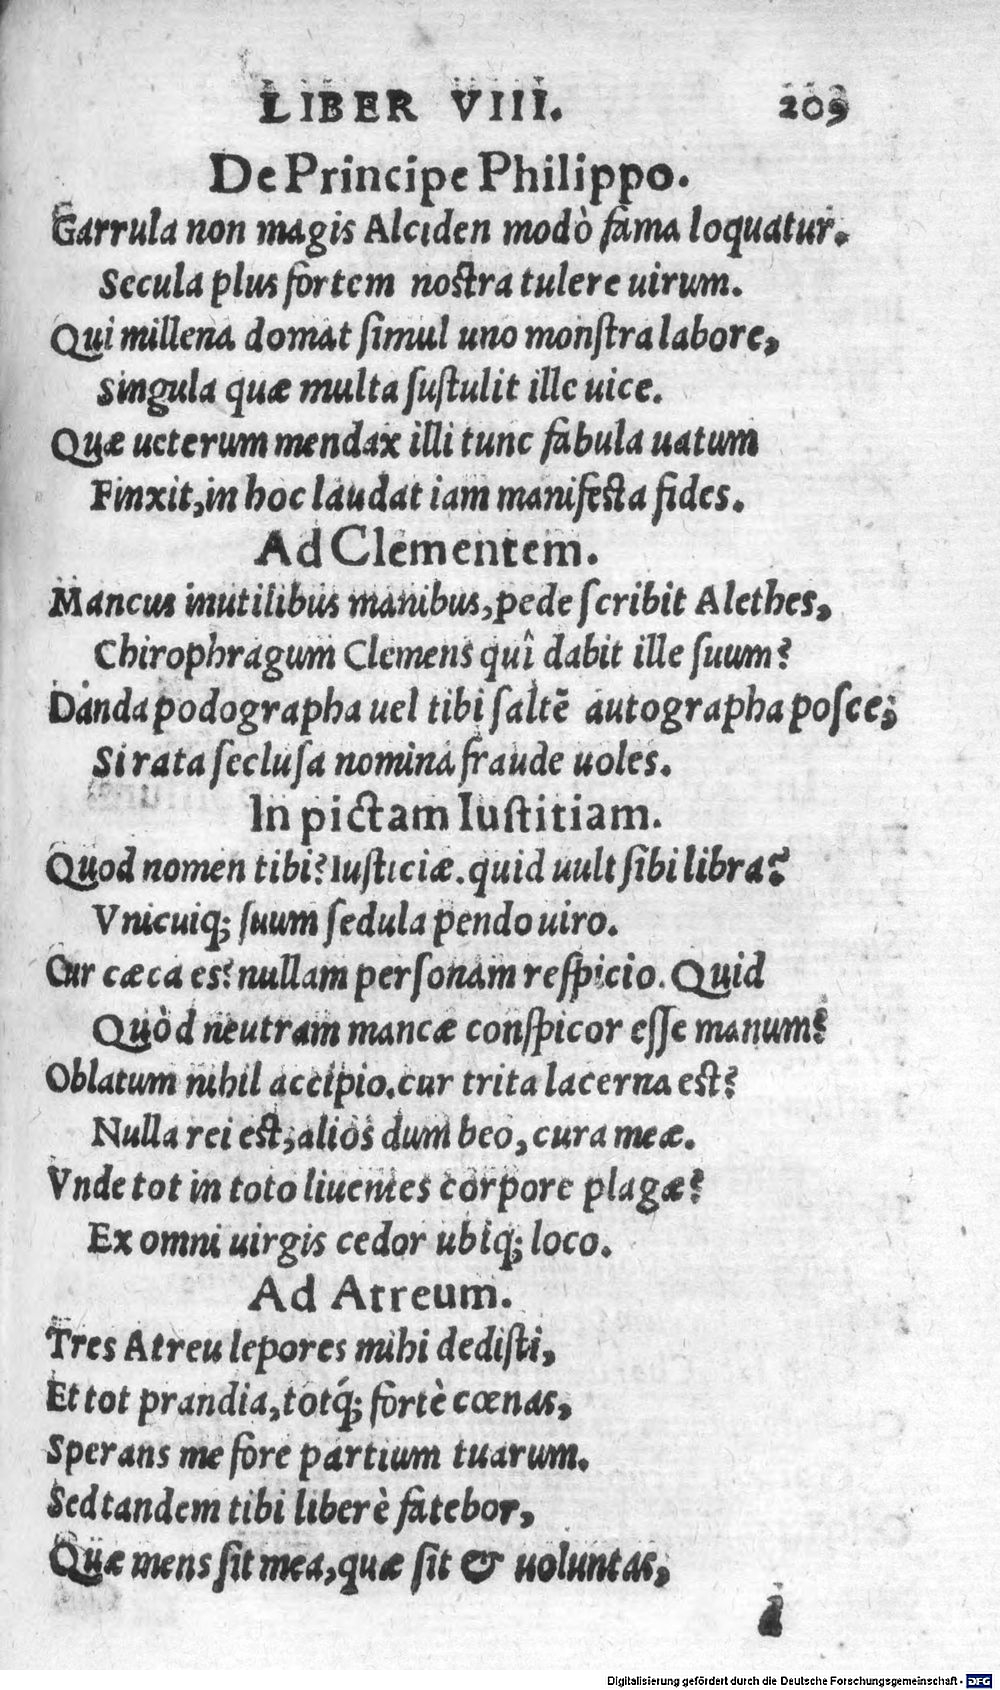 LIBER VIII. 209
De Principe Philippo.
Garrula non magis Alciden modò fama loquatur.
Secula plus fortem nostra tulere uirum.
Qui millena domat simul uno monstra labore,
Singula quæ multa sustulit ille uice.
Quæ ueterum mendax illi tunc fabula uatum
Finxit, in hoc laudat iam manifesta fides.
Ad Clementem.
Mancus inutilibus manibus, pede scribit Alethes,
Chirophragum Clemens quî dabit ille suum?
Danda podographa uel tibi saltē autographa posce,
Si rata seclusa nomina fraude uoles.
In pictam Iustitiam.
Quod nomen tibi? Iusticiæ. quid uult sibi libra?
Vnicuiq; suum sedula pendo uiro.
Cur cæca es? nullam personam respicio. Quid
Quòd neutram mancæ conspicor esse manum?
Oblatum nihil accipio. cur trita lacerna est?
Nulla rei est, alios dum beo, cura meæ.
Vnde tot in toto liuentes corpore plagæ?
Ex omni uirgis cedor ubiq; loco.
Ad Atreum.
Tres Atreu lepores mihi dedisti,
Et tot prandia, totq́; fortè cœnas,
Sperans me fore partium tuarum.
Sed tandem tibi liberè fatebor,
Quæ mens sit mea, quæ sit & uoluntas,
Digitalisierung gefördert durch die Deutsche Forschungsgemeinschaft - DFG